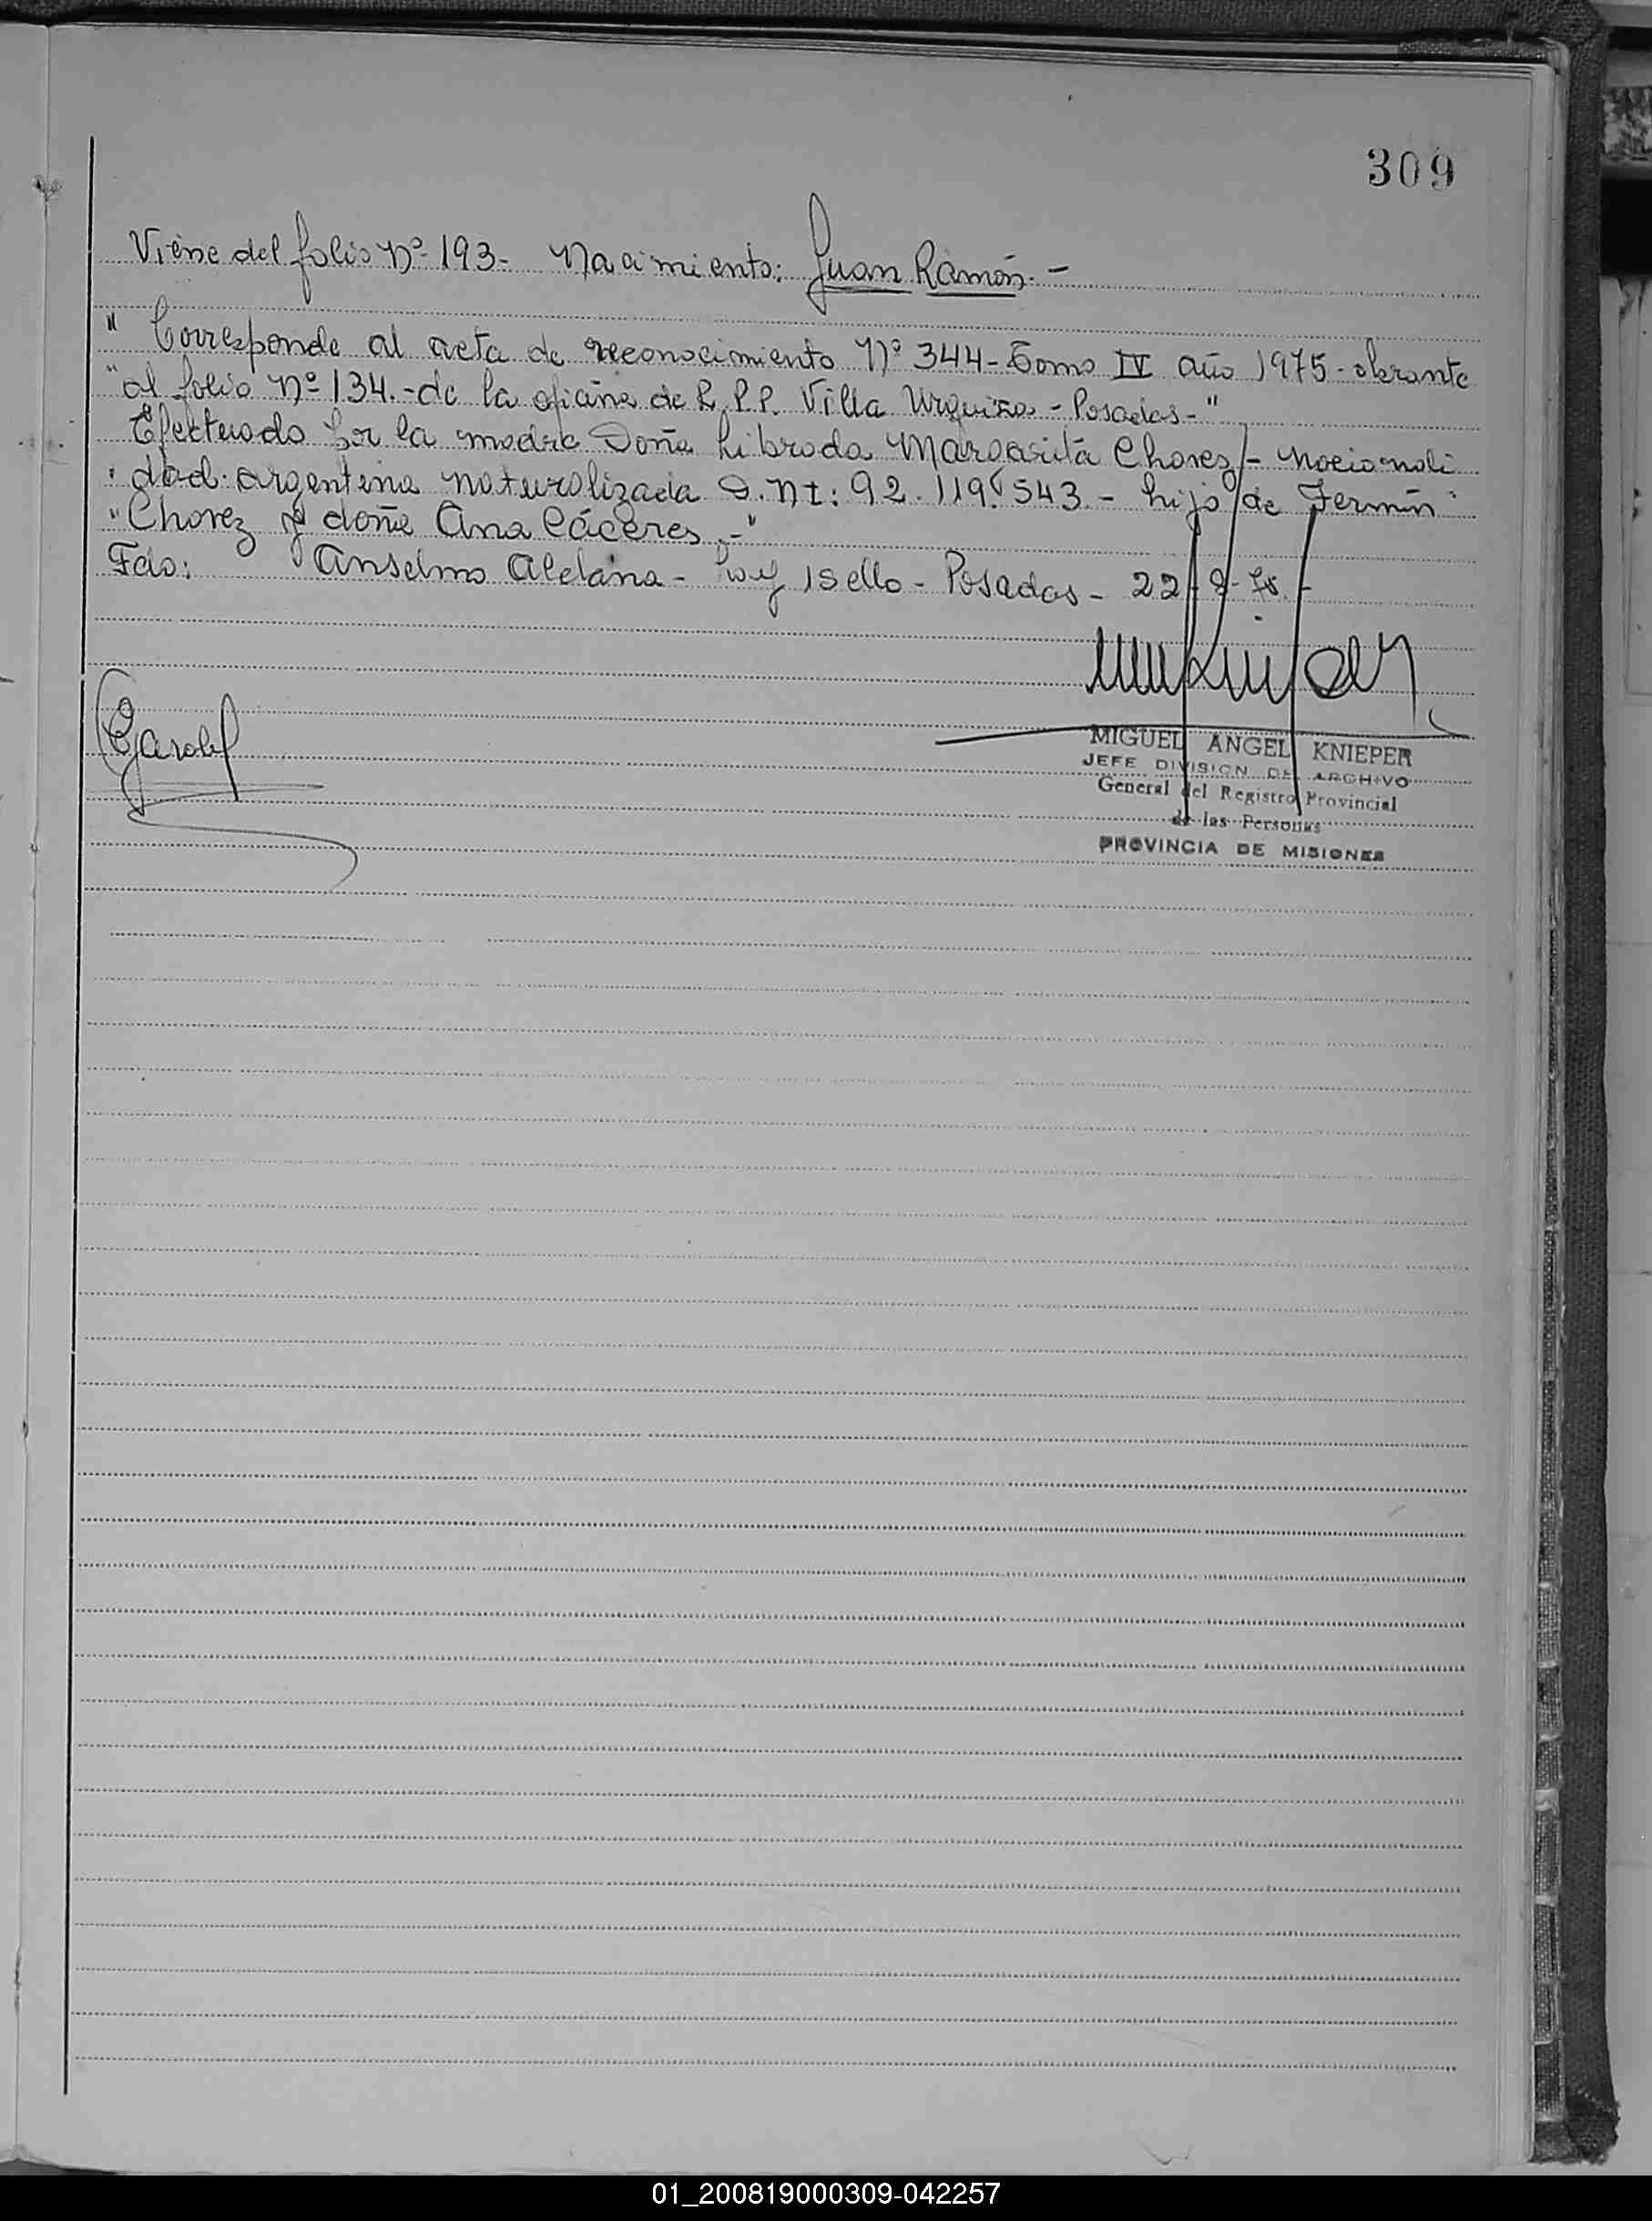 309
Viene del folio Nº 193- Nacimiento: Juan Ramón.-
" Corresponde al acta de reconocimiento Nº 344- Tomo IV año 1975- obrante
"al folio Nº 134.-de la oficina de R.P.P. Villa Urquiza - Posadas-"
Efectuado por la madre Doña Librada Margarita Chavez - Nacionali
dad: argentina naturalizada D.NI: 92.119.543.- hijo de Fermín
"Chavez y doña Ana Cáceres.-"
Fdo: Anselmo Aldana- Hay 1 sello - Posadas- 22-
MIGUEL ANGEL KNIEPER
JEFE DIVISION DE ARCHIVO
General del Registro Provincial
de las Personas
PROVINCIA DE MISIONES
01_200819000309-042257